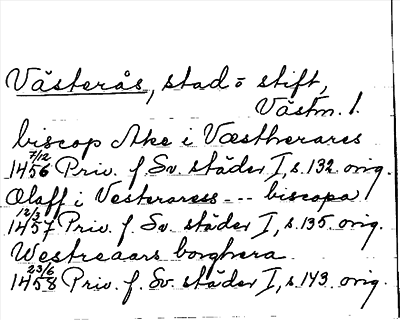 Västerås, stad o stift,
Västm. l.
biscop Ake i Væstherares
7/12 1456 Priv. f. Sv. städer I, s. 132. orig.
Olaff i Vesteraress --- biscopa
12/3 1457 Priv. f. Sv. städer I, s. 135. orig.
Westreaars borghera
23/6 1458 Priv. f. Sv. städer I, s. 143. orig.